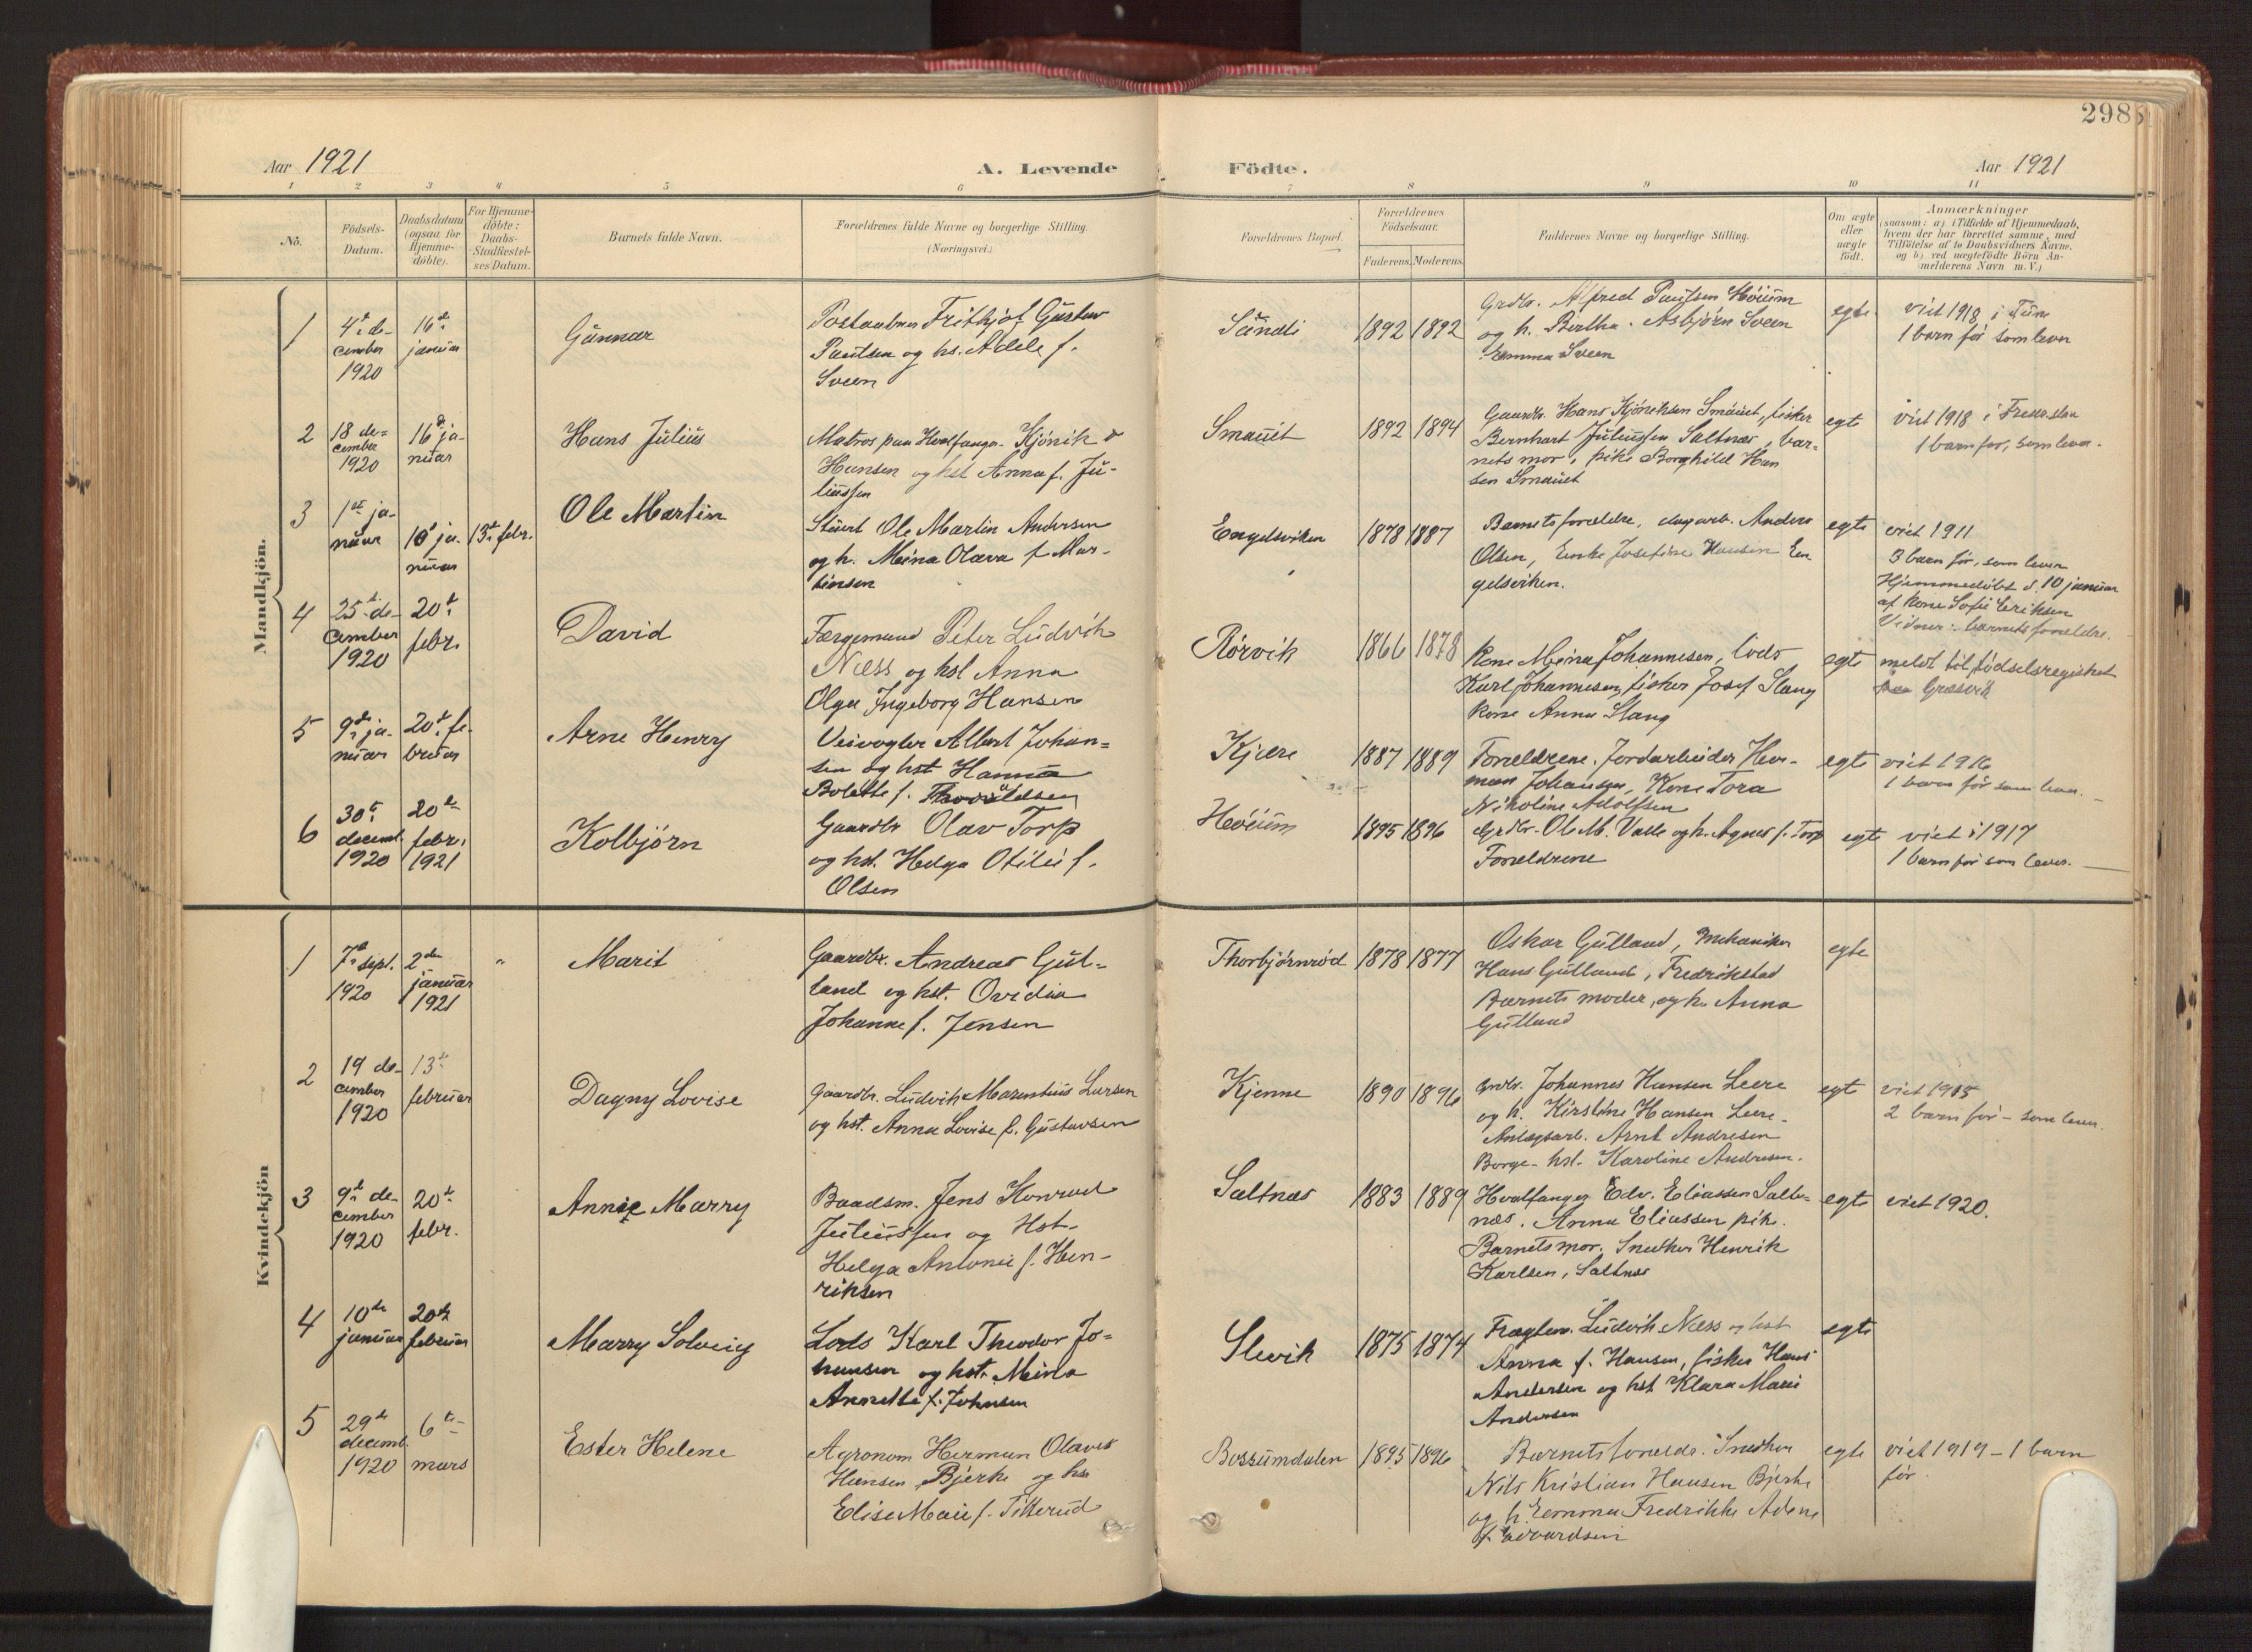 298
Aar 1921
A. Levende
Födte.
Aar 1921
1 2 3 4 5 6 7 8 9 10 11
No.
Födsels-
Datum.
Daabsdatum
(ogsaa for
Hjemme-
döbte).
For Hjemme-
döbte:
Daabs-
Stadfæstel-
ses Datum.
Barnets fulde Navn.
Forældrenes fulde Navne og borgerlige Stilling.
(Næringsvei.)
Forældrenes Bopæl.
Forældrenes
Födselsaar.
Faderens. Moderens.
Faddernes Navne og borgerlige Stilling.
Om ægte
eller
uægte
födt.
Anmærkninger
(saasom: a) i Tilfælde af Hjemmedaab,
hvem der har forrettet samme, med
Tilföielse af to Daabsvidners Navne,
og b) ved uægtefödte Börn An-
melderens Navn m. V.)
Mandkjön.
1
4de de-
cember
1920
16de
januar
Gunnar
Frithjof Gustav
Paulsen og hs. Adele f.
Sveen
Sundli
1892 1892
Grdbr. Alfred Paulsen Höium
og h. Bertha. Asbjörn Sveen
Emma Sveen
egte
viet 1918 i Tune
1 barn før som lever
2
18 de-
cember
1920
16de ja-
nuar
Hans Julius
Matros paa Hvalfanger Kjönik
Hansen og hst Anna f. Ju-
liussen
Smauet
1892 1894
Gaardbr. Hans Kjöniksen Smauet, fisker
Bernhart Juliussen Saltnes, bar-
nets mor, pike Borghild Han
sen Smauet
egte
viet 1918 i
1 barn før, som lever.
3
1ste ja-
nuar
10de ja-
nuar
13de febr.
Ole Martin
Stuert Ole Martin Andersen
og h. Meina Olava f. Mar-
tinsen
Engelsviken
1878 1887
Barnets forældre, dagarb. Anders
Olsen, Enke Josefine Hansen En
gelsviken.
egte
viet 1911
3 barn før, som lever
Hjemmedöbt d. 10 januar
af kone Sofie Eriksen
Vidner: barnets forældre.
4
25de de-
cember
1920
20de
febr.
David
Færgemand Peter Ludvik
Næss og hst Anna
Olga Ingeborg Hansen
Rörvik
1866 1878
Kone Meina Johannesen, lods
Karl Johannesen, fisker Josef Slang
kone Anna Slang
egte
meldt til födselsregistret
Græsvik
5
9de ja-
nuar
20de fe-
bruar
Arne Henry
Veivogter Albert Johan=
sen og hst Hanna
Bolette f. Thorvaldsen
Kjære
1887 1889
Forældrene. Jordarbeider Her-
man Johansen, Kone Tora
Nikoline Adolfsen
egte
viet 1916
1 barn før som lever.
6
30te
decemb.
1920
20de
febr.
1921
Kolbjörn
Gaardbr Olav Torp
og hst. Helga Otilie f.
Olsen
Höium
1895 1896
Grdbr. Ole M. Valle og h. Agnes f. Torp
Forældrene
egte
viet i 1917
1 barn før som lever.
Kvindekjön
1
7de sept.
1920
2den
januar
1921
"
Marit
Gaardbr. Andreas Gul=
land og hst. Ovidia
Johanne f. Jensen
Thorbjørnrød
1878 1877
Oskar Gulland, Mekaniker
Hans Gulland, Fredrikstad
Barnets moder, og h. Anna
Gulland
egte
2
19 de-
cember
1920
13de
februar
Dagny Lovise
Gaardbr. Ludvik Marentius Larsen
og hst. Anna Lovise f. Gustavsen
Kjenne
1890 1896
Grdbr. Johannes Hansen Leere
og h. Kirstine Hansen Leere
Anlægsarb. Arnt Andresen
Borge - hst. Karoline Andresen.
egt
viet 1915
2 barn før - som lever.
3
9de de-
cember
1920
20de
febr.
Annie Marry
Baadsm. Jens Konrad
Juliussen og Hst.
Helga Antonie f. Hen-
riksen
Saltnes
1883 1889
Hvalfanger Edv. Eliassen Salt=
næs. Anna Eliassen pike.
Barnets mor. Snedker Henrik
Karlsen, Saltnes
egte
viet 1920.
4
10de
januar
20de
februar
Marry Solveig
Lods Karl Theodor Jo=
hansen og hst. Meina
Annette f. Johnsen
Slevik
1875 1874
Ludvik Næss og hst
Anna f. Hansen, fisker Hans
Andersen og hst Klara Marie
Andersen
egte
5
29de
decemb.
1920
6te
mars
Ester Helene
Agronom Herman Olaves
Hansen Bjerke og hst
Elise Marie f. Titterud
Bossumdalen
1895 1896
Barnets forældr. Snedker
Nils Kristian Hansen Bjerke
og h. Emma Fredrikke Adene
f. Edvardsen
egte
viet 1919 - 1 barn
før.